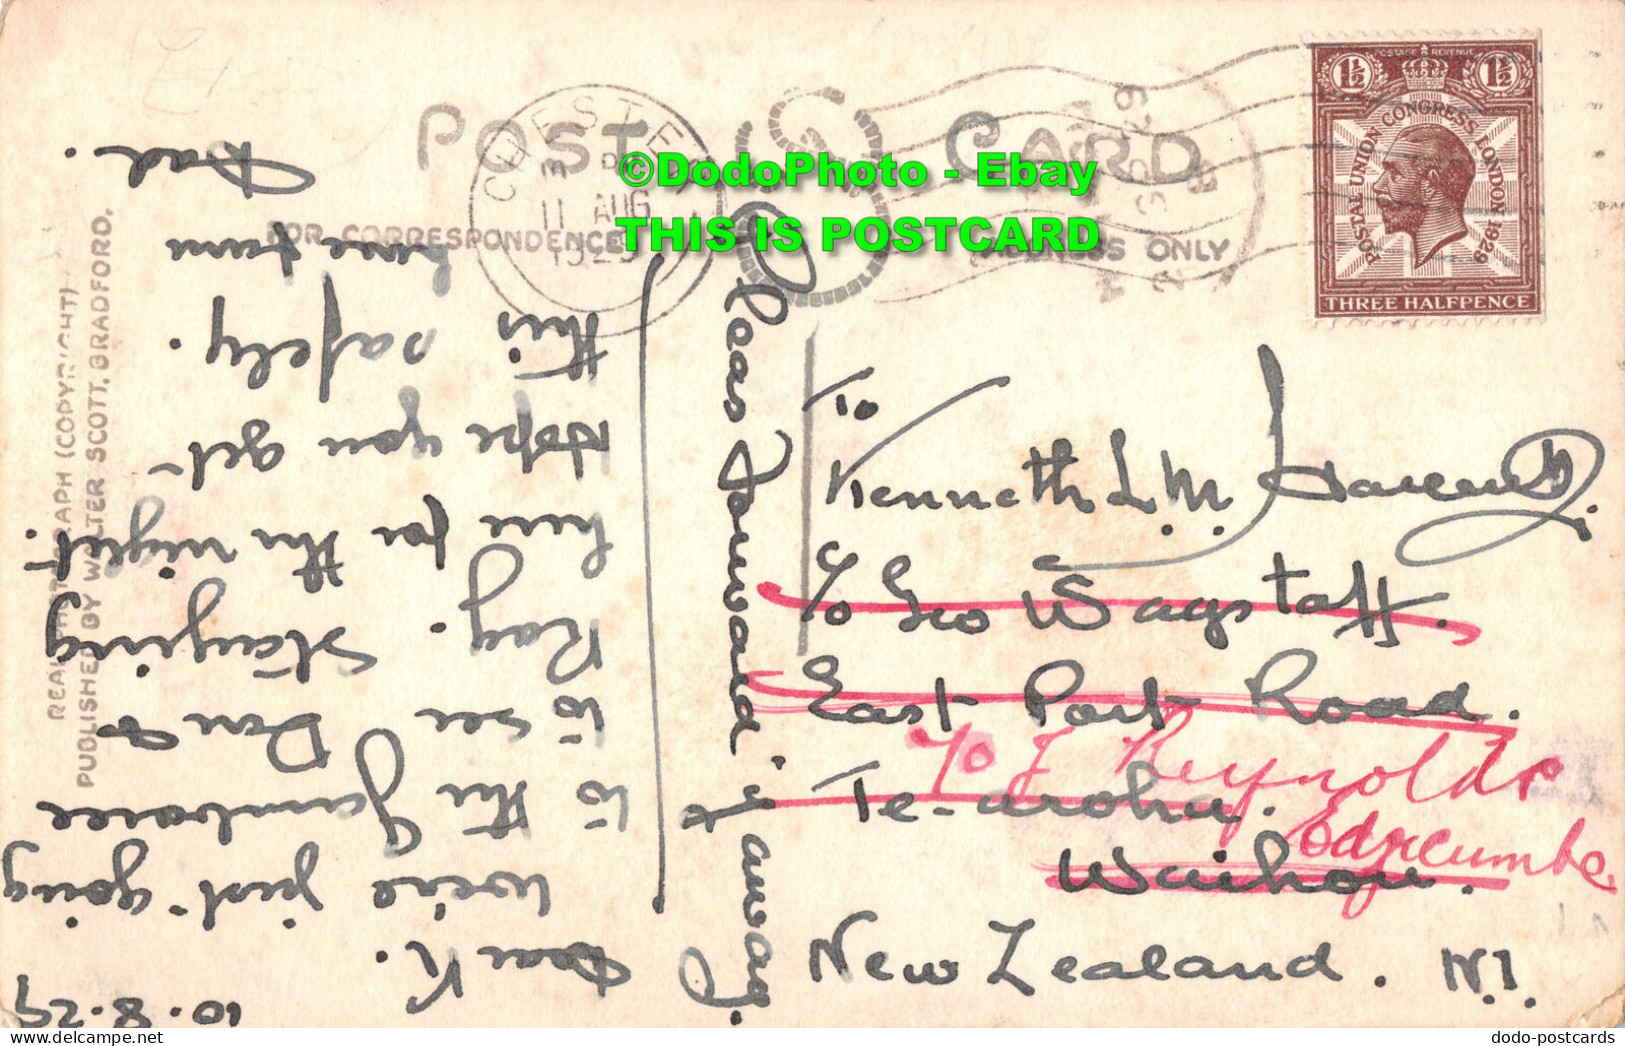 POST CARD
FOR CORRESPONDENCE
ADDRESS ONLY
CHESTER
11 AUG
1929
©DodoPhoto - Ebay
THIS IS POSTCARD
POSTAGE REVENUE
1½ 1½
POSTAL UNION CONGRESS LONDON 1929
THREE HALFPENCE
REAL PHOTOGRAPH (COPYRIGHT)
PUBLISHED BY WALTER SCOTT, BRADFORD.
10.8.29
Dear K.
We're just going
to the Jamboree
to see Dan &
Ray. Staying
here for the night.
Hope you get
this safely.
Love from
Dad.
Please Forward if away
To
Kenneth L.M.
c/o Geo Wagstaff.
East Port Road.
Te-aroha.
Waihou.
New Zealand. N.I.
c/o F Reynolds
Edgecumbe
dodo-postcards